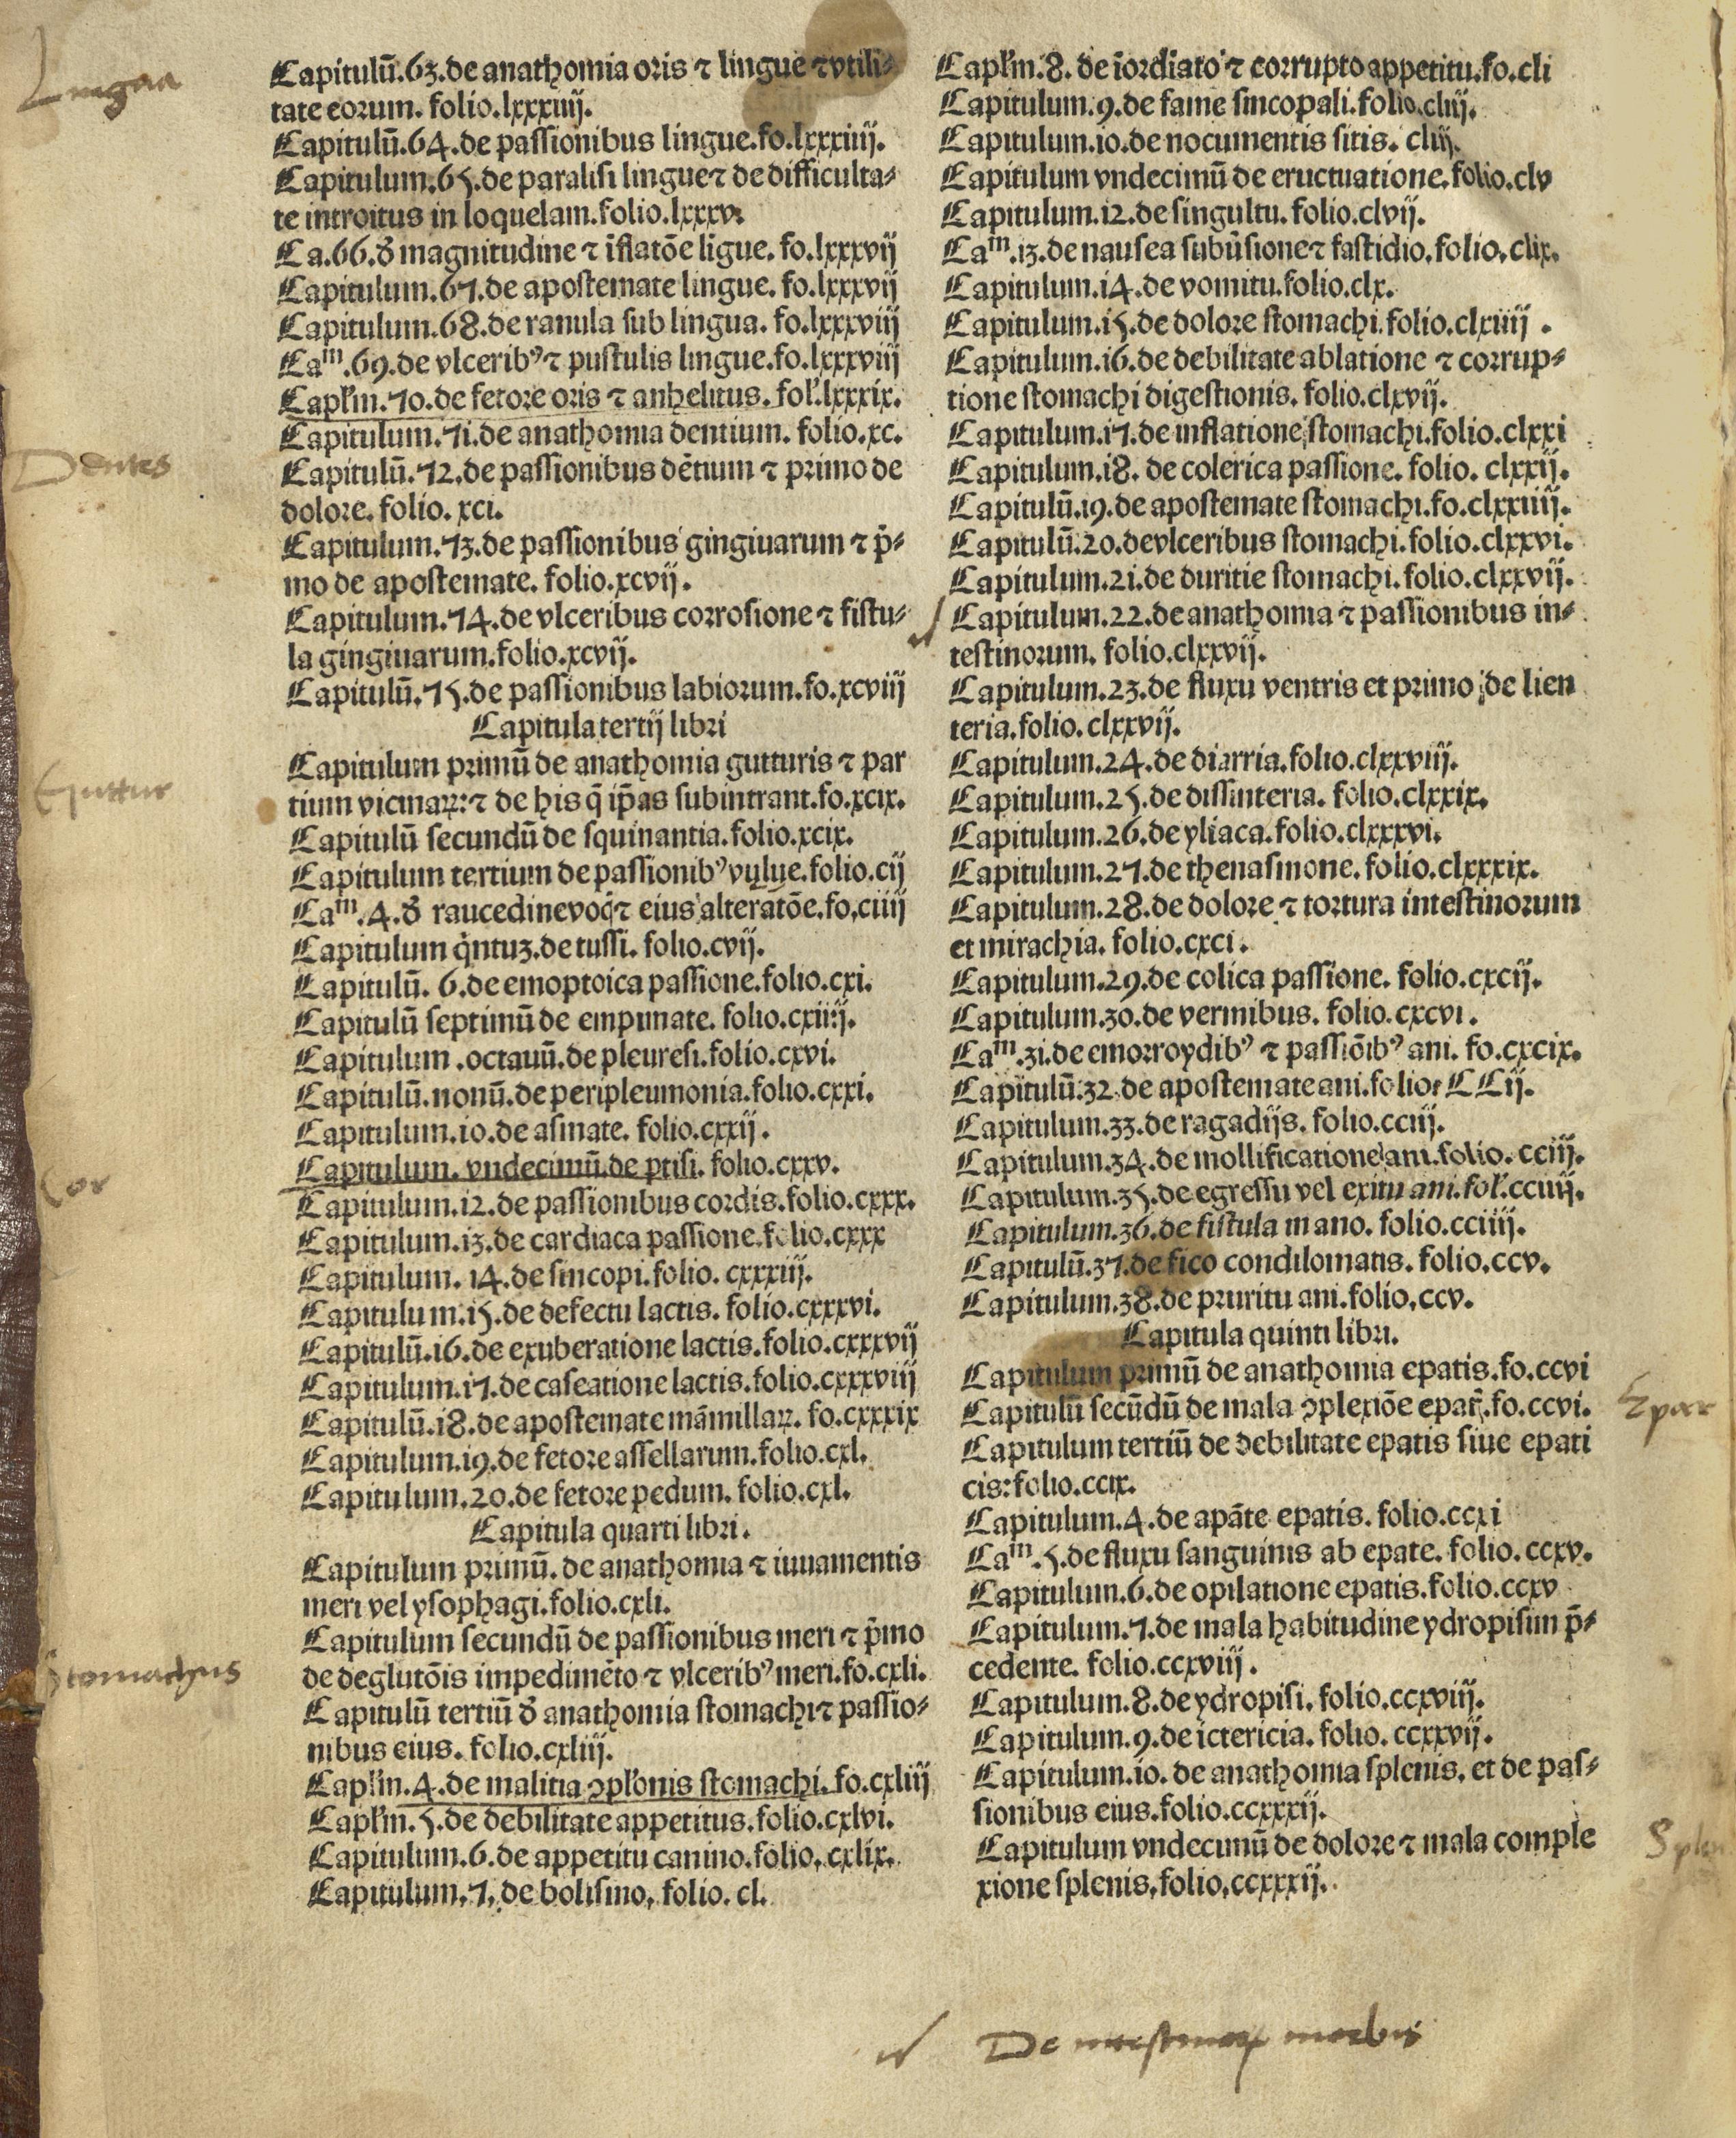 Lingua
Capitulū.63.de anathomia oris ⁊ lingue ⁊vtili⸗
tate eorum. folio.lxxxiiij.
Capitulū.64.de passionibus lingue.fo.lxxxiiij.
Capitulum.65.de paralisi lingue⁊ de difficulta⸗
te introitus in loquelam.folio.lxxxv.
Ca.66.ð magnitudine ⁊ īflatōe līgue. fo.lxxxvij
Capitulum.67.de apostemate lingue. fo.lxxxvij
Capitulum.68.de ranula sub lingua. fo.lxxxviij
Caᵐ.69.de vlceribꝰ⁊ pustulis lingue.fo.lxxxviij
Capl'm.70.de fetore oris ⁊ anhelitus. fol'.lxxxix.
Capitulum.71.de anathomia dentium. folio.xc.
Dentes
Capitulū.72.de passionibus dētium ⁊ primo de
dolore. folio. xci.
Capitulum.73.de passionibus gingiuarum ⁊ p̄⸗
mo de apostemate. folio.xcvij.
Capitulum.74.de vlceribus corrosione ⁊ fistu⸗
la gingiuarum.folio.xcvij.
Capitulū.75.de passionibus labiorum.fo.xcviij
Capitula tertij libri
Capitulum primū de anathomia gutturis ⁊ par
Guttur
tium vicinaꝝ:⁊ de his q̄ ip̄as subintrant.fo.xcix.
Capitulū secundū de squinantia.folio.xcix.
Capitulum tertium de passionibꝰ vulue.folio.cij
Caᵐ.4.ð raucedine voc̄⁊ eius alteratōe.fo.ciiij
Capitulum q̇ntuꝫ.de tussi. folio.cvij.
Capitulū. 6.de emoptoica passione.folio.cxi.
Capitulū septimū de empimate. folio.cxiiij.
Capitulum .octauū.de pleuresi.folio.cxvi.
Capitulū.nonū.de peripleumonia.folio.cxxi.
Capitulum.10.de asmate. folio.cxxij.
Capitulum. vndecimū.de ptisi. folio.cxxv.
Cor
Capitulum.12.de passionibus cordis.folio.cxxx.
Capitulum.13.de cardiaca passione.folio.cxxx
Capitulum. 14.de sincopi.folio. cxxxiij.
Capitulum.15.de defectu lactis. folio.cxxxvi.
Capitulū.16.de exuberatione lactis.folio.cxxxvij
Capitulum.17.de caseatione lactis.folio.cxxxviij
Capitulū.18.de apostemate māmillaꝝ. fo.cxxxix
Capitulum.19.de fetore assellarum.folio.cxl.
Capitulum.20.de fetore pedum. folio.cxl.
Capitula quarti libri.
Capitulum primū. de anathomia ⁊ iuuamentis
meri vel ysophagi.folio.cxli.
Capitulum secundū de passionibus meri ⁊ p̄mo
Stomachus
de deglutōis impedimēto ⁊ vlceribꝰ meri.fo.cxli.
Capitulū tertiū ð anathomia stomachi⁊ passio⸗
nibus eius. folio.cxliij.
Capl'm.4.de malitia ꝯpl'onis stomachi.fo.cxliij
Capl'm.5.de debilitate appetitus.folio.cxlvi.
Capitulum.6.de appetitu canino.folio.cxlix.
Capitulum.7.de bolismo, folio. cl.
Capl'm.8. de īordiato ⁊ corrupto appetitu.fo.cli
Capitulum.9.de fame sincopali.folio.cliij.
Capitulum.10.de nocumentis sitis. cliij.
Capitulum vndecimū de eructuatione.folio.clv
Capitulum.12.de singultu. folio.clvij.
Caᵐ.13.de nausea subūsione⁊ fastidio.folio.clix.
Capitulum.14.de vomitu.folio.clx.
Capitulum.15.de dolore stomachi.folio.clxiiij .
Capitulum.16.de debilitate ablatione ⁊ corrup⸗
tione stomachi digestionis. folio.clxvij.
Capitulum.17.de inflatione stomachi.folio.clxxi
Capitulum.18. de colerica passione. folio. clxxij.
Capitulū.19.de apostemate stomachi.fo.clxxiiij.
Capitulū.20.de vlceribus stomachi.folio.clxxvi.
Capitulum.21.de duritie stomachi.folio.clxxvij.
Capitulum.22.de anathomia ⁊ passionibus in⸗
testinorum. folio.clxxvij.
Capitulum.23.de fluxu ventris et primo de lien
teria.folio. clxxvij.
Capitulum.24.de diarria.folio.clxxviij.
Capitulum.25.de dissinteria. folio.clxxix.
Capitulum.26.de yliaca.folio.clxxxvi.
Capitulum.27.de thenasmone. folio.clxxxix.
Capitulum.28.de dolore ⁊ tortura intestinorum
et mirachia. folio.cxci.
Capitulum.29.de colica passione. folio.cxcij.
Capitulum.30.de vermibus. folio.cxcvi.
Caᵐ.31.de emorroydibꝰ ⁊ passiōibꝰ ani. fo.cxcix.
Capitulū.32.de apostemate ani.folio. CCij.
Capitulum.33.de ragadijs. folio.cciij.
Capitulum.34.de mollificatione ani.folio. cciij.
Capitulum.35.de egressu vel exitu ani.fol'.cciiij.
Capitulum.36.de fistula in ano. folio.cciiij.
Capitulū.37.de fico condilomatis. folio.ccv.
Capitulum.38.de pruritu ani.folio.ccv.
Capitula quinti libri.
Capitulum primū de anathomia epatis.fo.ccvi
Epar
Capitulū secūdū de mala ꝯplexiōe epat̄.fo.ccvi.
Capitulum tertiū de debilitate epatis siue epati
cis:folio.ccix.
Capitulum.4.de apāte epatis. folio.ccxi
Caᵐ.5.de fluxu sanguinis ab epate. folio.ccxv.
Capitulum.6.de opilatione epatis.folio.ccxv
Capitulum.7.de mala habitudine ydropisim p̄⸗
cedente. folio.ccxviij.
Capitulum.8.de ydropisi. folio.ccxviij.
Capitulum.9.de ictericia. folio. ccxxvij.
Capitulum.10. de anathomia splenis. et de pas⸗
sionibus eius.folio.ccxxxij.
Capitulum vndecimū de dolore ⁊ mala comple
xione splenis.folio.ccxxxij.
De intestinoꝝ morbis